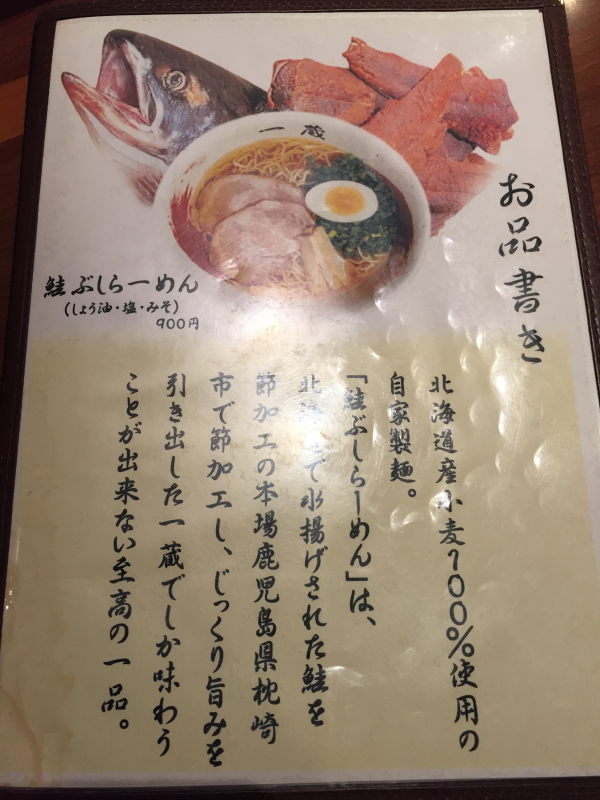 一蔵
お品書き
鮭ぶしらーめん
(しょう油・塩・みそ)
900円
北海道産小麦100%使用の
自家製麺。
「鮭ぶしらーめん」は、
北海道で水揚げされた鮭を
節加工の本場鹿児島県枕崎
市で節加工し、じっくり旨みを
引き出した一蔵でしか味わう
ことが出来ない至高の一品。